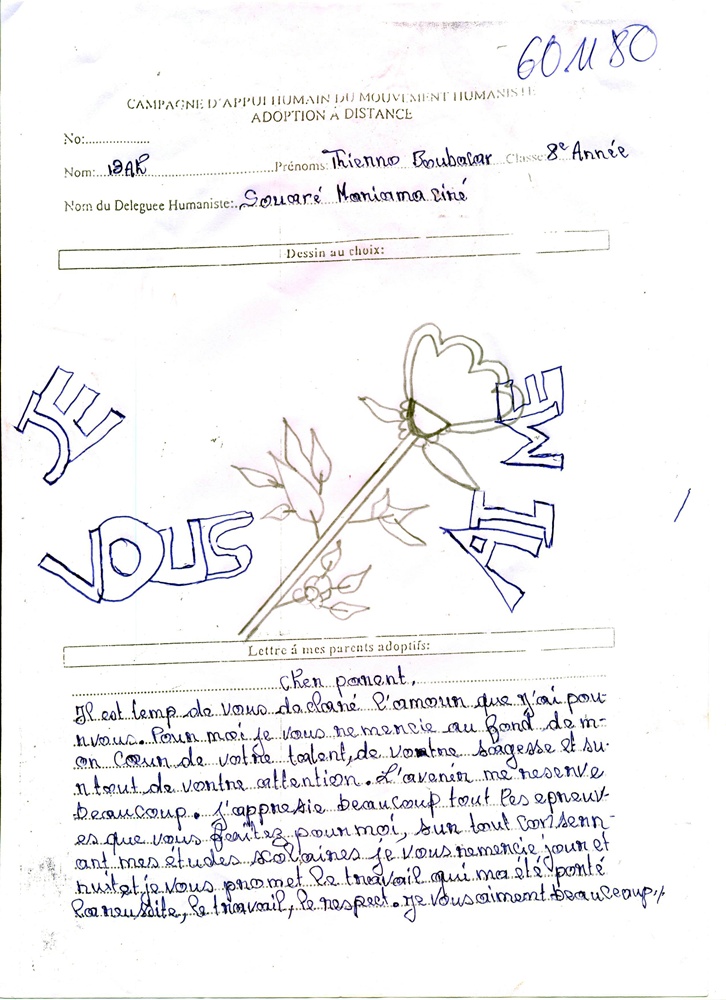 601180
CAMPAGNE D'APPUI HUMAIN DU MOUVEMENT HUMANISTE
ADOPTION A DISTANCE
No:
Nom: Prénoms: Thienno Boubacar Classe: 8e Année
Nom du Deleguee Humaniste: Souaré Maniama ciné
Dessin au choix:
JE
VOUS
AIT ME
Lettre á mes parents adoptifs:
Cher parent,
Il est temp de vous daclaré l'amour que j'ai pou-
r vous. Pour moi je vous remercie au fond de m-
on Cœur de votre talent, de vontre sagesse et su-
rtout de vontre attention. L'avenir me reserve
beaucoup. J'appresie beaucoup tout les epreuv-
es que vous faitez pour moi, sur tout consern-
ant mes études scolaires je vous remercie jour et
nuit et je vous promet le travail qui ma été porté
la reussite, le travail, le respect. je vous aiment beaucoup